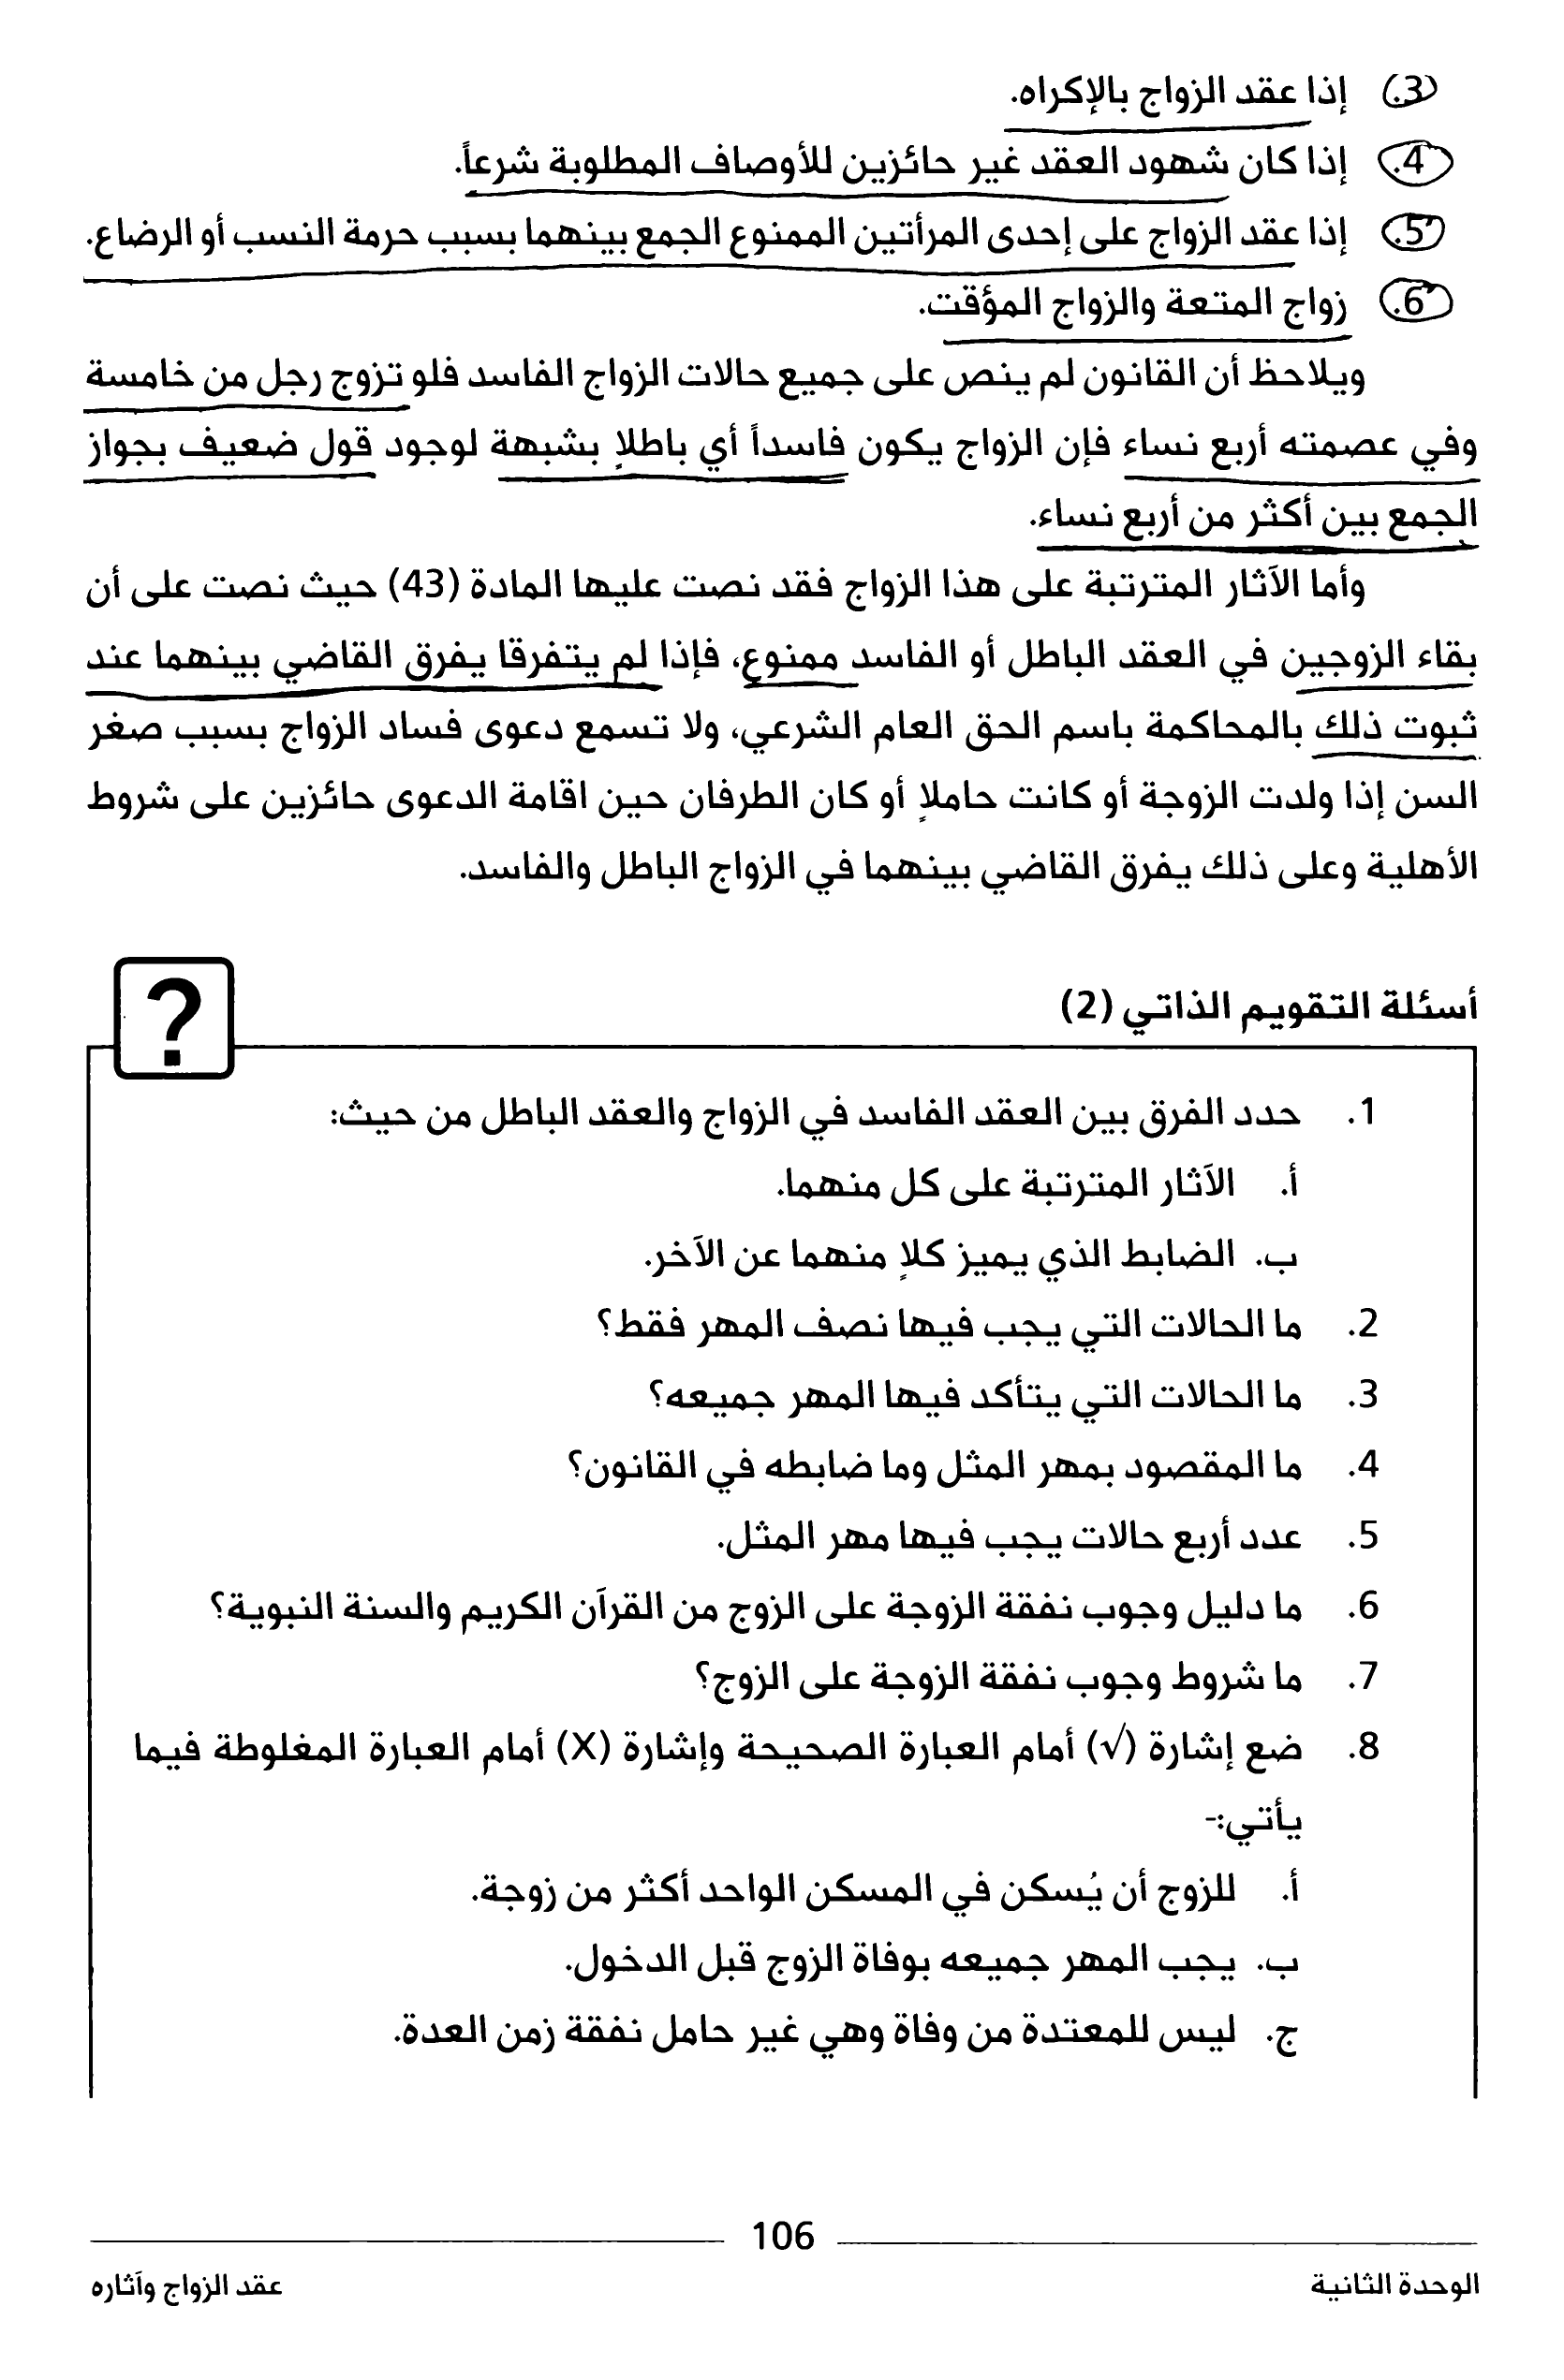 3. إذا عقد الزواج بالإكراه.
4. إذا كان شهود العقد غير حائزين للأوصاف المطلوبة شرعاً.
5. إذا عقد الزواج على إحدى المرأتين الممنوع الجمع بينهما بسبب حرمة النسب أو الرضاع.
6. زواج المتعة والزواج المؤقت.
ويلاحظ أن القانون لم ينص على جميع حالات الزواج الفاسد فلو تزوج رجل من خامسة
وفي عصمته أربع نساء فإن الزواج يكون فاسداً أي باطلاٍ بشبهة لوجود قول ضعيف بجواز
الجمع بين أكثر من أربع نساء.
وأما الآثار المترتبة على هذا الزواج فقد نصت عليها المادة (43) حيث نصت على أن
بقاء الزوجين في العقد الباطل أو الفاسد ممنوع، فإذا لم يتفرقا يفرق القاضي بينهما عند
ثبوت ذلك بالمحاكمة باسم الحق العام الشرعي، ولا تسمع دعوى فساد الزواج بسبب صغر
السن إذا ولدت الزوجة أو كانت حاملاٍ أو كان الطرفان حين اقامة الدعوى حائزين على شروط
الأهلية وعلى ذلك يفرق القاضي بينهما في الزواج الباطل والفاسد.
?
أسئلة التقويم الذاتي (2)
1. حدد الفرق بين العقد الفاسد في الزواج والعقد الباطل من حيث:
أ. الآثار المترتبة على كل منهما.
ب. الضابط الذي يميز كلاٍ منهما عن الآخر.
2. ما الحالات التي يجب فيها نصف المهر فقط؟
3. ما الحالات التي يتأكد فيها المهر جميعه؟
4. ما المقصود بمهر المثل وما ضابطه في القانون؟
5. عدد أربع حالات يجب فيها مهر المثل.
6. ما دليل وجوب نفقة الزوجة على الزوج من القرآن الكريم والسنة النبوية؟
7. ما شروط وجوب نفقة الزوجة على الزوج؟
8. ضع إشارة (√) أمام العبارة الصحيحة وإشارة (X) أمام العبارة المغلوطة فيما
يأتي:-
أ. للزوج أن يُسكن في المسكن الواحد أكثر من زوجة.
ب. يجب المهر جميعه بوفاة الزوج قبل الدخول.
ج. ليس للمعتدة من وفاة وهي غير حامل نفقة زمن العدة.
106
الوحدة الثانية
عقد الزواج وآثاره